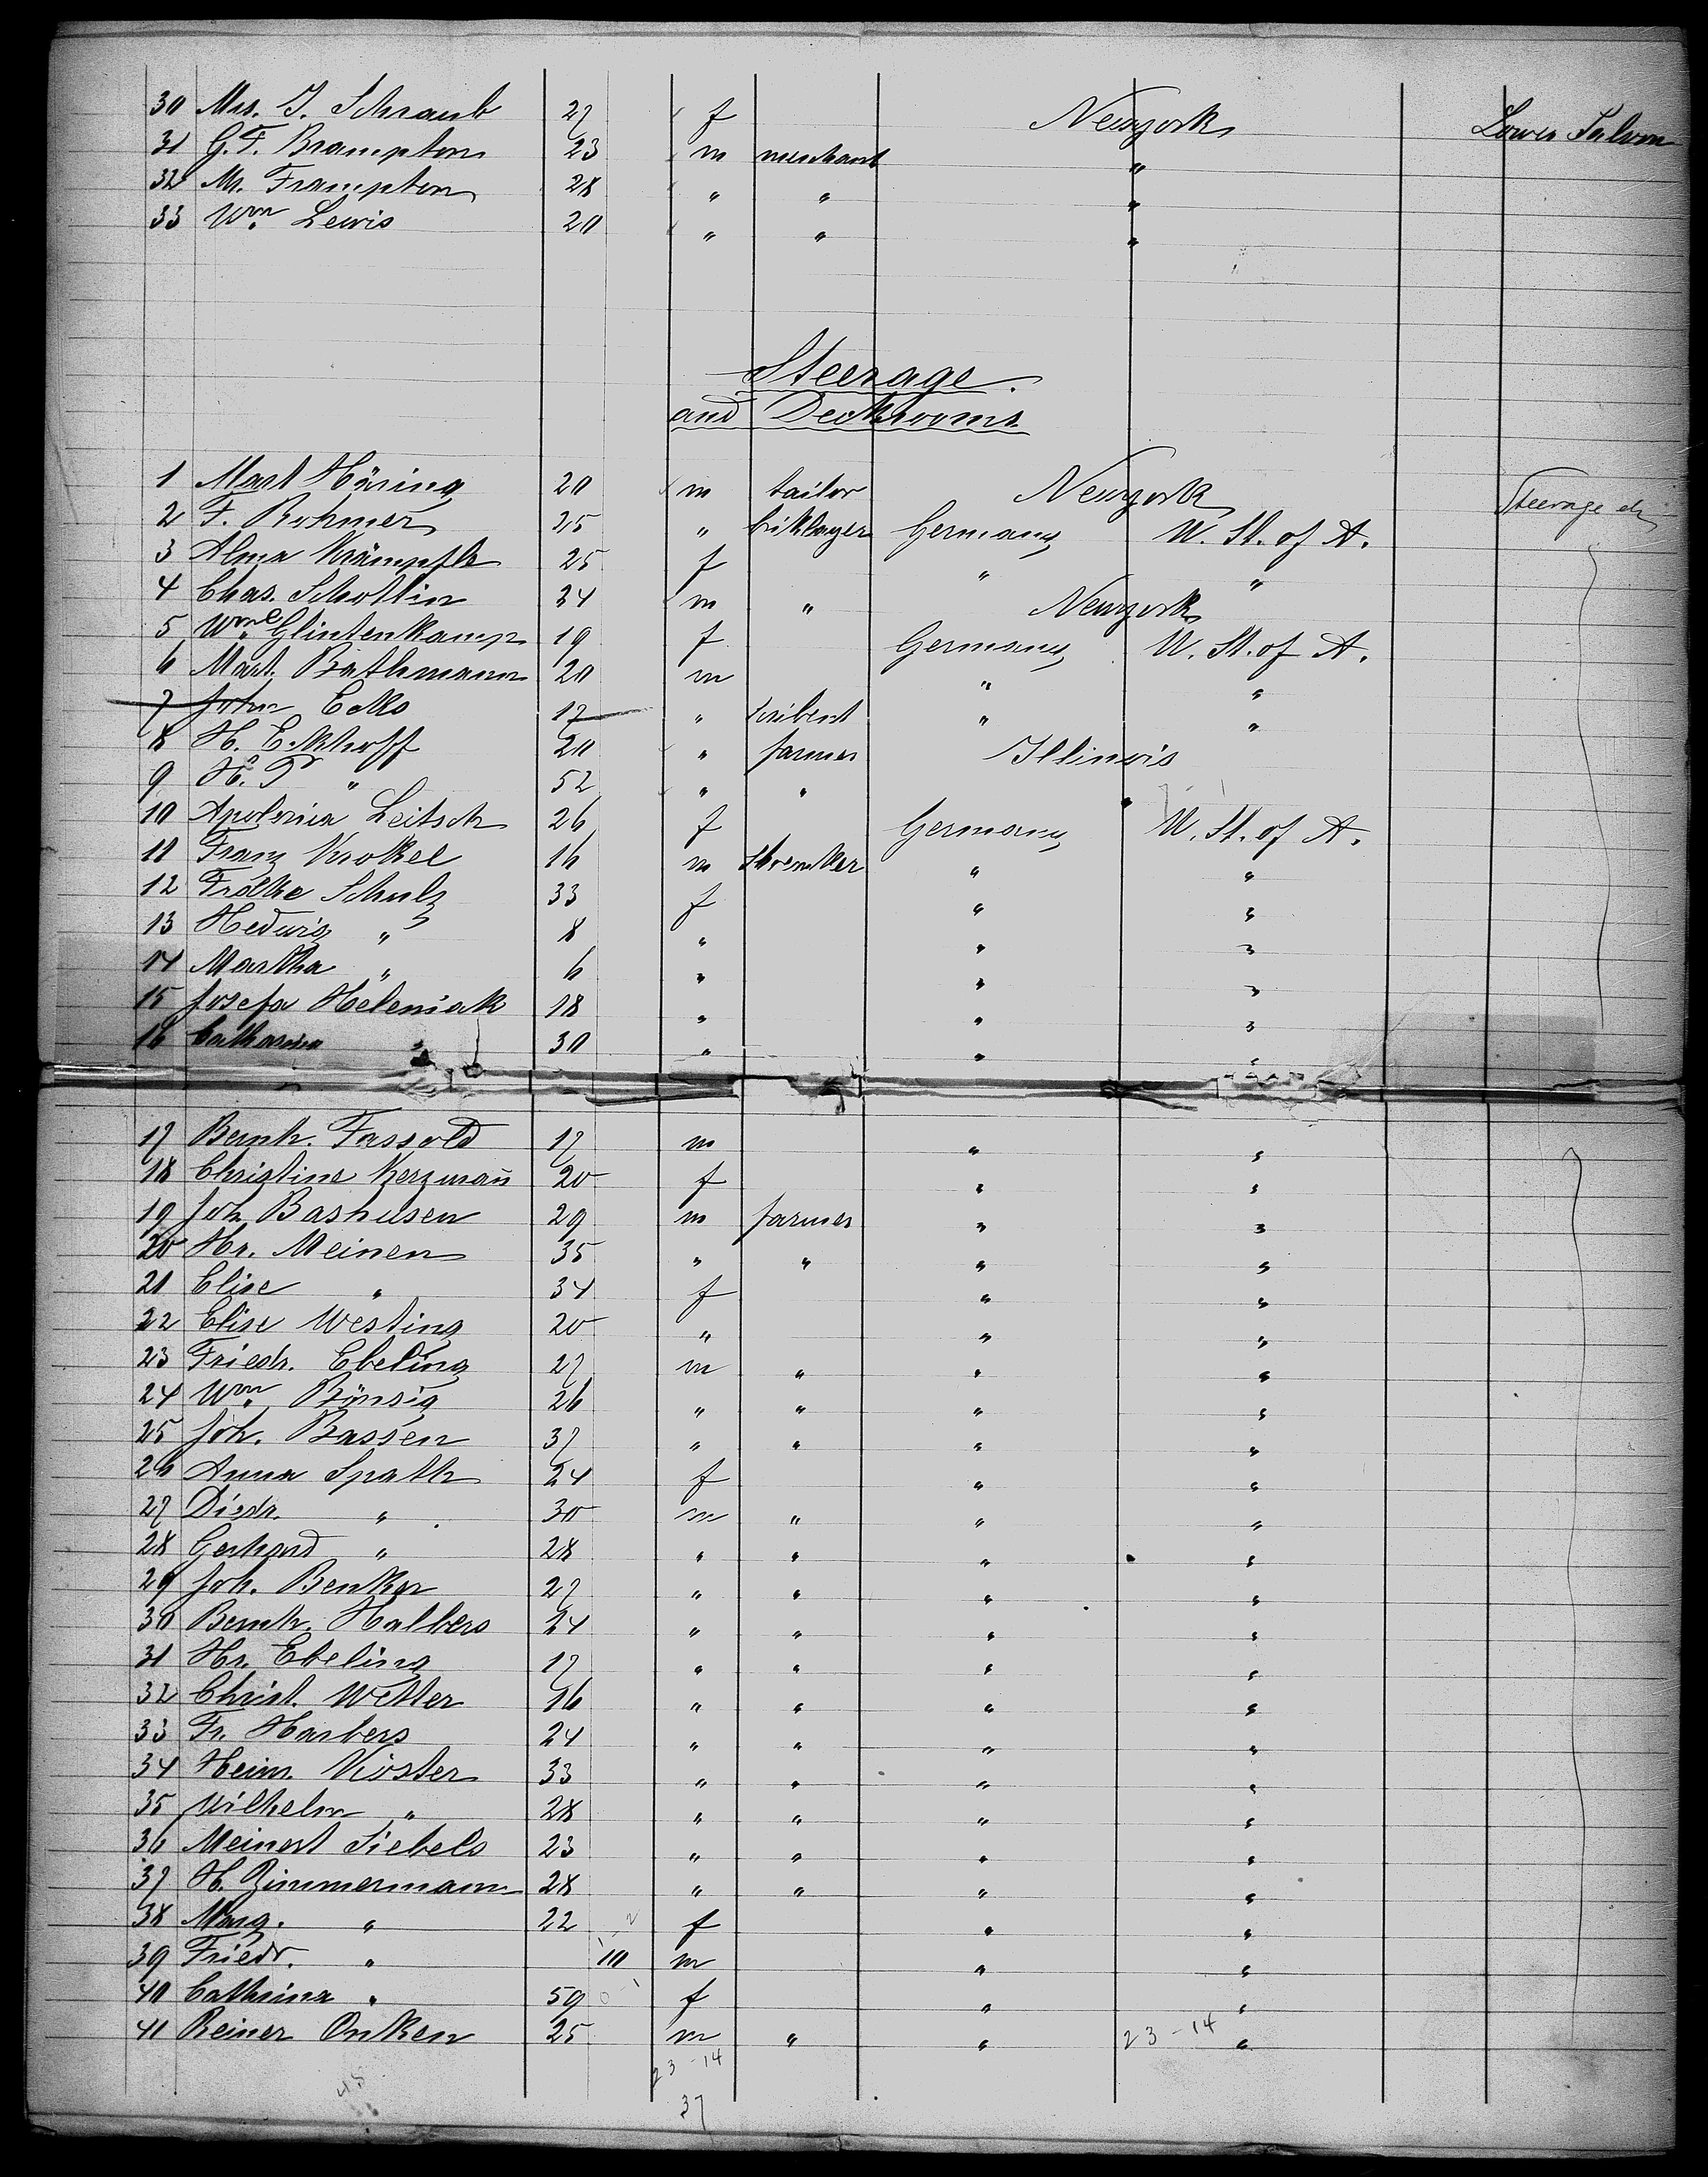 30 Mrs. J. Schraub 27 f Newyork Lower Saloon
31 G. F. Brampton 23 m merchant "
32 M. Frampton 28 " " "
33 Wm. Lewis 20 " " "
Steerage.
and Deckrooms
1 Mart Häring 20 m tailor Newyork Steerage
2 F. Rohmer 25 " briklayer Germany U. St. of A.
3 Alma Krämpfle 25 f " "
4 Chas. Schottin 24 m " Newyork
5 Wme. Glintenkamp 19 f Germany U. St. of A.
6 Mart. Bathmann 20 m " "
7 John Ecks 17 " " "
8 H. Eckhoff 20 " farmer Illinois
9 H. P. " 52 " " "
10 Apolonia Leitsch 26 f Germany U. St. of A.
11 Franz Krokel 16 m " "
12 Frdke Schulz 33 f " "
13 Hedwig " 8 " " "
14 Martha " 6 " " "
15 Josefa Heleniak 18 " " "
16 Catharina " 30 " " "
17 Bernh. Fassold 17 m " "
18 Christine Kerzmañ 20 f " "
19 Joh. Bashusen 29 m farmer " "
20 Hr. Meinen 35 " " " "
21 Elise " 34 f " "
22 Elise Westing 20 " " "
23 Friedr. Ebeling 27 m " " "
24 Wm. Bönsig 26 " " " "
25 Joh. Bassen 37 " " " "
26 Anna Spath 24 f " "
27 Diedr. " 30 m " " "
28 Gerhard " 28 " " " "
29 Joh. Benker 27 " " " "
30 Bernh. Halbers 24 " " " "
31 Hr. Ebeling 17 " " " "
32 Christ. Wetter 16 " " " "
33 Fr. Harbers 24 " " " "
34 Heinr. Köster 33 " " " "
35 Wilhelm " 28 " " " "
36 Meinert Siebels 23 " " " "
37 H. Zimmermann 28 " " " "
38 Marg. " 22 f " "
39 Friedr. " 10 m " "
40 Cathrina " 59 f " "
41 Reiner Onken 25 m " " "
23-14
23-14
37